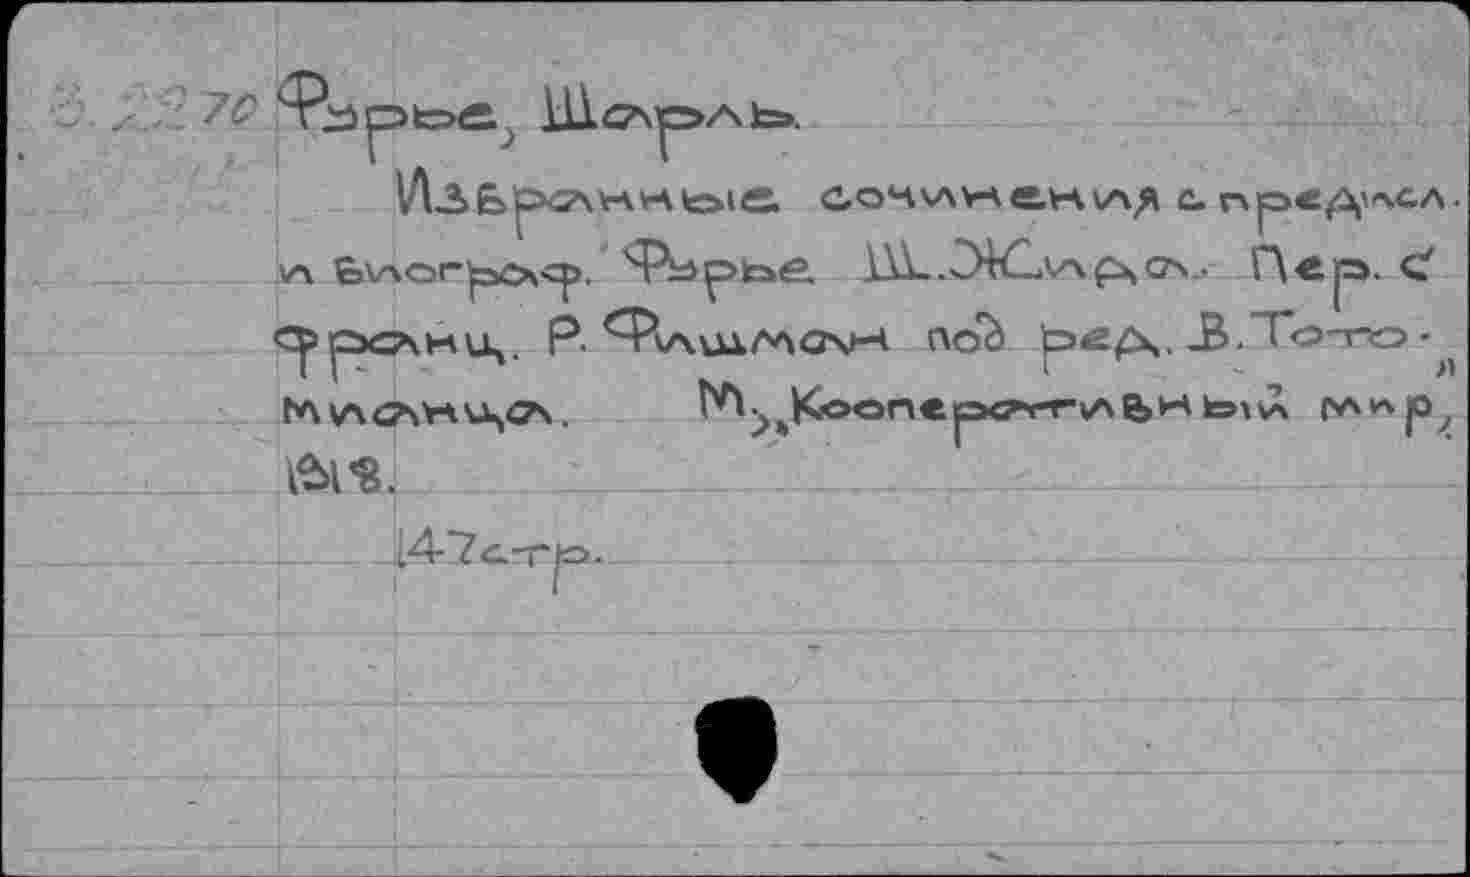 Фурье, Шарль.
Избранные сочинения с предисл.
и биограф. Фурье Ш. Жида. Пер. с
франц. Р. Фишман под ред. В. Тото-
мианца. М., „Кооперативный мир",
1918.
147 стр.